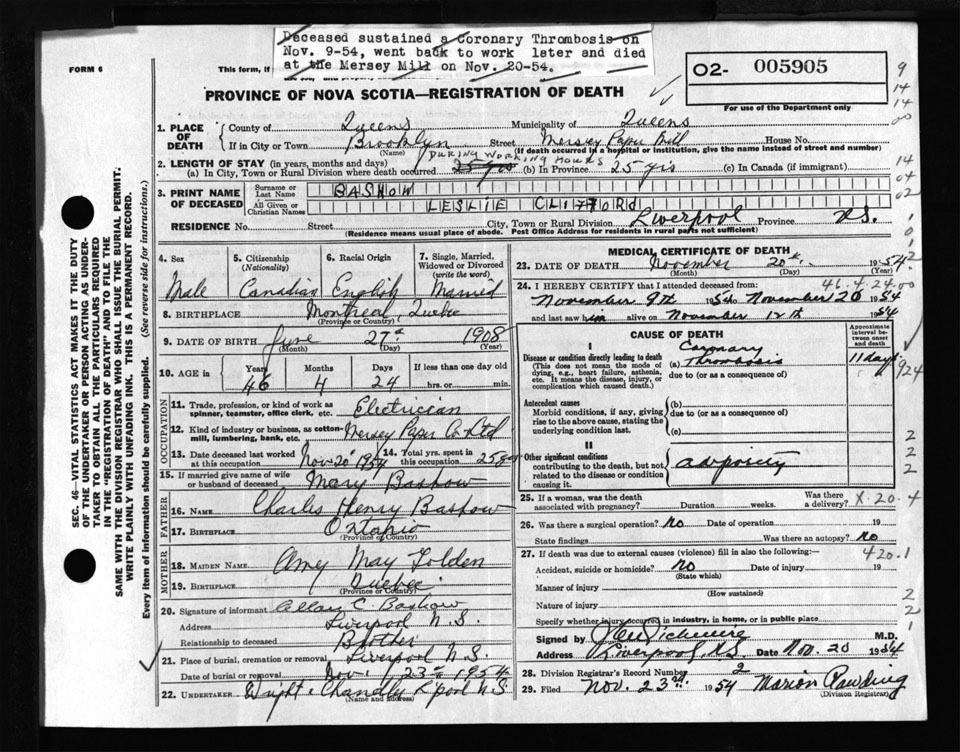 Deceased sustained a Coronary Thrombosis on
Nov. 9-54, went back to work later and died
at the Mersey Mill on Nov. 20-54.
FORM 6
This form, if
02- 005905
For use of the Department only
PROVINCE OF NOVA SCOTIA—REGISTRATION OF DEATH
1. PLACE OF DEATH County of Queens Municipality of Queens
If in City or Town Brooklyn Street Mersey Paper Mill House No.
(Name) (If death occurred in a hospital or institution, give the name instead of street and number)
DURING WORKING HOURS
2. LENGTH OF STAY (in years, months and days)
(a) In City, Town or Rural Division where death occurred 25 yrs (b) In Province 25 yrs (c) In Canada (if immigrant)
3. PRINT NAME OF DECEASED Surname or Last Name BASHOW
All Given or Christian Names LESLIE CLIFFORD
RESIDENCE No. Street City, Town or Rural Division Liverpool Province N.S.
(Residence means usual place of abode. Post Office Address for residents in rural parts not sufficient)
4. Sex Male
5. Citizenship (Nationality) Canadian
6. Racial Origin English
7. Single, Married, Widowed or Divorced (write the word) Married
8. BIRTHPLACE Montreal Quebec
(Province or Country)
9. DATE OF BIRTH June 27th 1908
(Month) (Day) (Year)
10. AGE in Years 46 Months 4 Days 24 If less than one day old hrs. or min.
OCCUPATION
11. Trade, profession, or kind of work as spinner, teamster, office clerk, etc. Electrician
12. Kind of industry or business, as cotton-mill, lumbering, bank, etc. Mersey Paper Co Ltd
13. Date deceased last worked at this occupation Nov 20 1954
14. Total yrs. spent in this occupation 25 yrs
15. If married give name of wife or husband of deceased Mary Bashow
FATHER
16. NAME Charles Henry Bashow
17. BIRTHPLACE Ontario
(Province or Country)
MOTHER
18. MAIDEN NAME Amy May Folden
19. BIRTHPLACE Quebec
(Province or Country)
20. Signature of informant Allan C. Bashow
Address Liverpool N.S.
Relationship to deceased Brother
21. Place of burial, cremation or removal Liverpool N.S.
Date of burial or removal Nov. 23rd 1954
22. UNDERTAKER Wright & Chandler L'pool N.S.
(Name and address)
MEDICAL CERTIFICATE OF DEATH
23. DATE OF DEATH November 20th 1954
(Month) (Day) (Year)
46.4.24.00
24. I HEREBY CERTIFY that I attended deceased from:
November 9th 1954 to November 20 1954
and last saw him alive on November 12th 1954
CAUSE OF DEATH
Approximate interval between onset and death
I
Disease or condition directly leading to death
(This does not mean the mode of dying, e.g., heart failure, asthenia, etc. It means the disease, injury, or complication which caused death.)
(a) Coronary Thrombosis 11 days
due to (or as a consequence of)
924
Antecedent causes
Morbid conditions, if any, giving rise to the above cause, stating the underlying condition last.
(b)
due to (or as a consequence of)
(c)
II
Other significant conditions
contributing to the death, but not related to the disease or condition causing it.
Adiposity
25. If a woman, was the death associated with pregnancy? Duration weeks. Was there a delivery?
X.20.4
26. Was there a surgical operation? No Date of operation 19
State findings Was there an autopsy? No
420.1
27. If death was due to external causes (violence) fill in also the following:—
Accident, suicide or homicide? No Date of injury 19
(State which)
Manner of injury
(How sustained)
Nature of injury
Specify whether injury occurred in industry, in home, or in public place
Signed by M.D.
Address Liverpool, N.S. Date Nov. 20 1954
28. Division Registrar's Record Number 2
29. Filed Nov. 23rd 1954 Marion Rawding
(Division Registrar)
SEC. 46—VITAL STATISTICS ACT MAKES IT THE DUTY
OF THE UNDERTAKER OR PERSON ACTING AS UNDER-
TAKER TO OBTAIN ALL THE PARTICULARS REQUIRED
IN THE "REGISTRATION OF DEATH" AND TO FILE THE
SAME WITH THE DIVISION REGISTRAR WHO SHALL ISSUE THE BURIAL PERMIT.
WRITE PLAINLY WITH UNFADING INK. THIS IS A PERMANENT RECORD.
Every item of information should be carefully supplied. (See reverse side for instructions.)